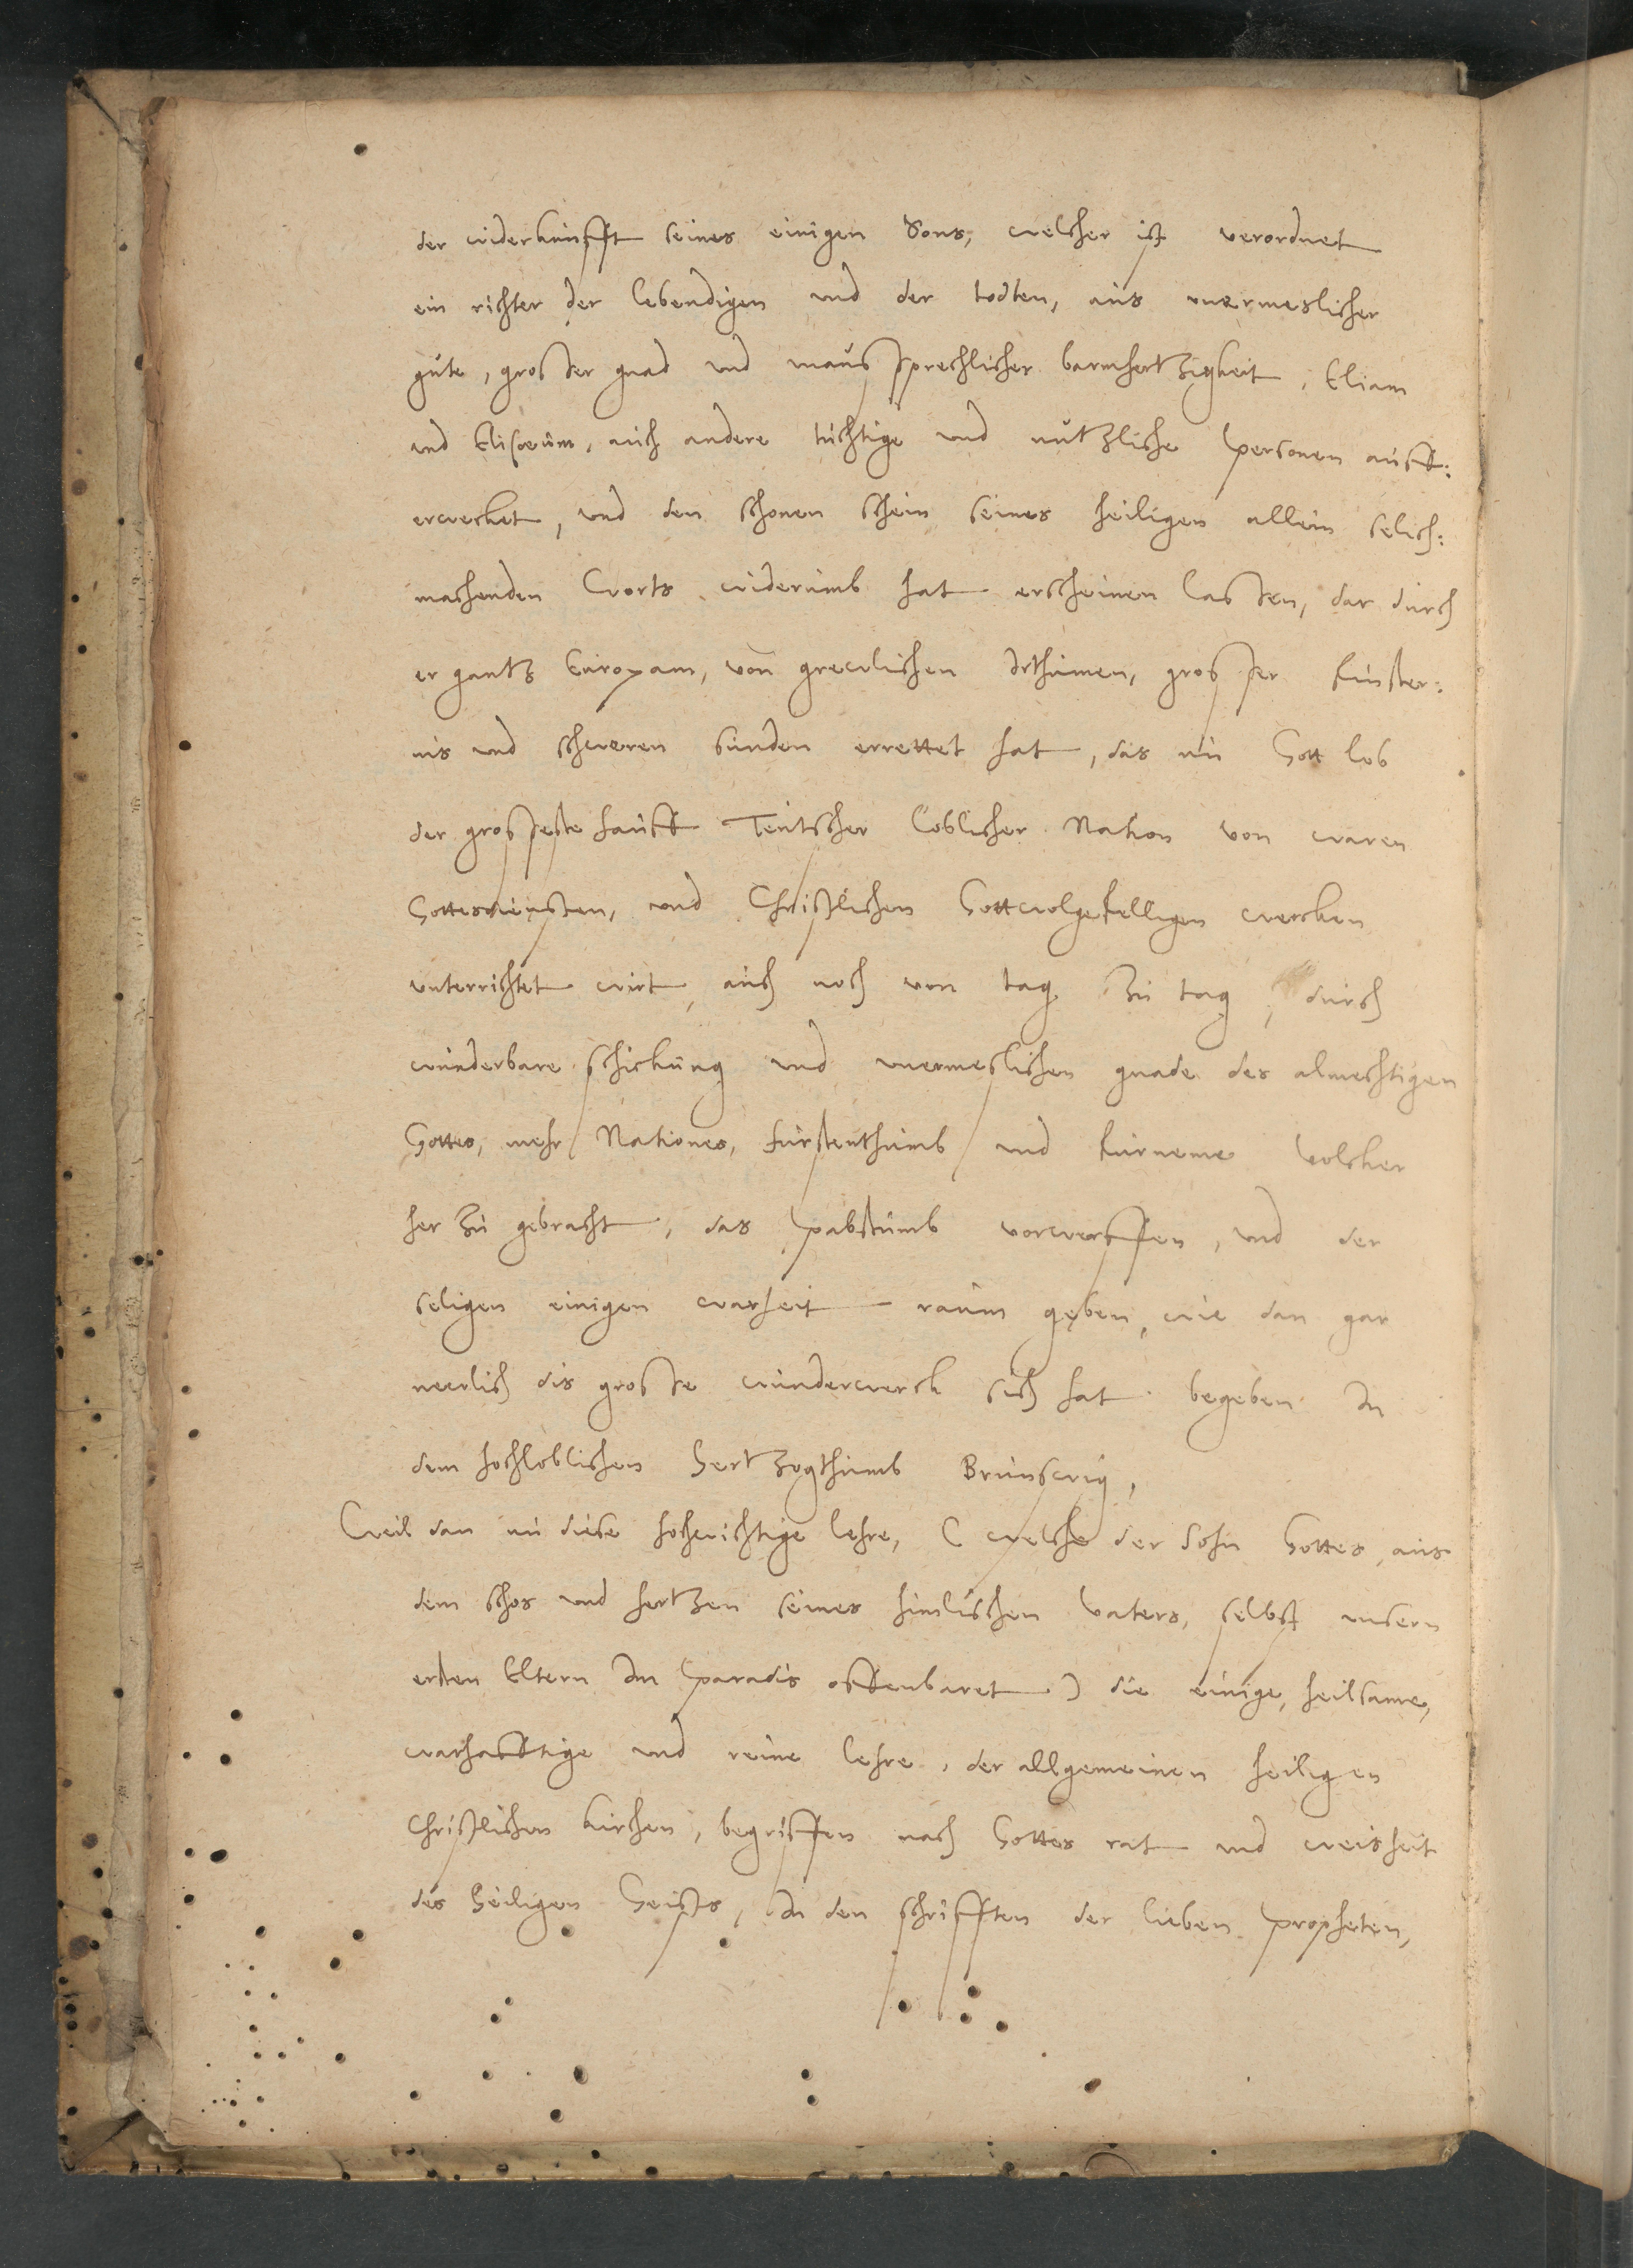 der widerkunfft seines einigen Sons, welcher ist verordnet
ein richter der lebendigen und der todten, aus unermeslicher
güte, grosser gnad und unausssprechlicher barmhertzigkeit, Eliam
und Elisaeum, auch andere tüchtige und nützliche personen auff:
erwecket, und den schonen schein seines heiligen allein selich:
machenden Worts widerumb hat erscheinen lassen, dar durch
er gantz Europam, von grewlichen Irthumen, grosser finster:
nis und schweren sünden errettet hat, das nu Gott lob
der grosseste hauff Teutscher loblicher Nation von waren
Gottesdiensten, und Christlichen Gottwolgefelligen wercken
unterrichtet wirt, auch noch von tag zu tag, durch
wunderbare schickung und unermeslichen gnade des almechtigen
Gottes, mehr Nationes, fürstenthumb und fürneme Volcker
her zu gebracht, das pabstumb vorwerffen, und der
seligen einigen warheit raum geben, wie dan gar
newlich dis grosse wunderwerck sich hat begeben In
dem hochloblichen Hertzogthumb Brunswig,
Weil dan nu diese hochwichtige lehre, ( welche der Sohn Gottes, aus
dem schos und hertzen seines himlischen Vaters, selbst unsern
ersten Eltern Im paradis offenbaret ) die einige, heilsame,
warhafftige und reine lehre, der allgemeinen heiligen
Christlichen kirchen, begriffen nach Gottes rat und weisheit
des Heiligen Geists, In den schrifften der lieben propheten,